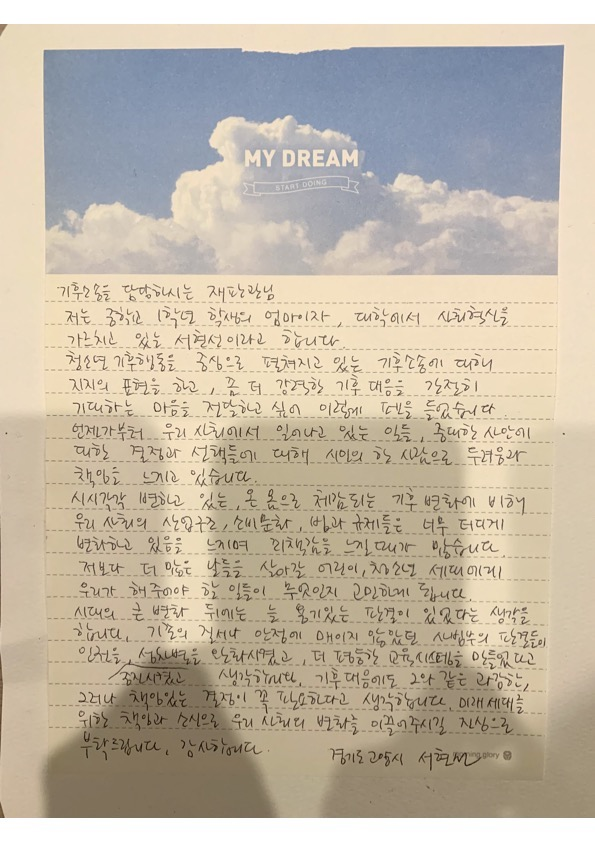 MY DREAM
START DOING
기후소송을 담당하시는 재판관님
저는 중학교 1학년 학생의 엄마이자, 대학에서 사회혁신을
가르치고 있는 서현선이라고 합니다.
청소년기후행동을 중심으로 펼쳐지고 있는 기후소송에 대해
지지의 표현을 하고, 좀 더 강력한 기후 대응을 간절히
기대하는 마음을 전달하고 싶어 이렇게 펜을 들었습니다.
언제가부터 우리 사회에서 일어나고 있는 일들, 중대한 사안에
대한 결정과 선택들에 대해 시민의 한 사람으로 두려움과
책임을 느끼고 있습니다.
시시각각 변하고 있는, 온 몸으로 체감되는 기후 변화에 비해
우리 사회의 산업구조, 소비문화, 법과 규제들은 너무 더디게
변화하고 있음을 느끼며 죄책감을 느낄 때가 많습니다.
저보다 더 많은 날들을 살아갈 어린이, 청소년 세대에게
우리가 해주어야 할 일들이 무엇인지 고민하게 됩니다.
시대의 큰 변화 뒤에는 늘 용기있는 판결이 있었다는 생각을
합니다. 기존의 질서나 안정에 매이지 않았던 사법부의 판결들이
인권을, 성차별을 완화시켰고, 더 평등한 교육시스템을 만들었다고
증진시켰고 생각합니다. 기후대응에도 그와 같은 과감한,
그러나 책임있는 결정이 꼭 필요하다고 생각합니다. 미래세대를
위한 책임과 소신으로 우리 사회의 변화를 이끌어주시길 진심으로
부탁드립니다. 감사합니다.
경기도 고양시 서현선
morning glory